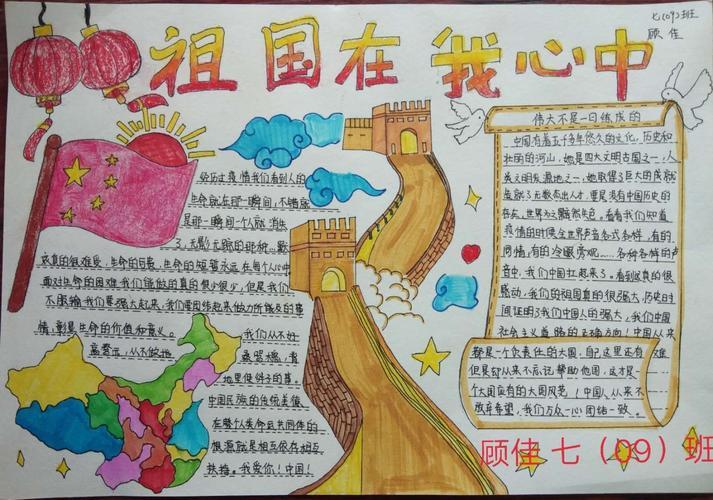 七(09)班
顾佳
祖国在我心中
经历过疫情我们看到人的
生命就在那一瞬间，不错就
是那一瞬间一个人就消失
了，无影无踪的那种。歌
生命的短暂永远在每个人心中
面对生命的困难我们能做的真的很少很少，但是我们
不服输我们要强大起来，我们要团结起来做力所能及的事
情，彰显生命的价值和意义。
我们从不好
高骛远，从不做地
地里使绊子的事。
中国民族的传统美德
在整个人类命运共同体的
根源就是相互依存相互
扶持。我爱你！中国！
伟大不是一日练成的
中国有着五千多年悠久的文化，历史和
壮丽的河山，她是四大文明古国之一，人
类文明发源地之一，她取得了巨大的成就
造就了无数杰出人才，要是没有中国历史的
存在，世界为之黯然失色。看着我们知道
疫情的时候全世界声音各式各样，有的
同情，有的冷眼旁观……各种各样的声
音中，我们中国扛起来了。看到这真的很
感动，我们的祖国真的很强大，历史时
间证明了我们中国人的强大，我们中国
社会主义道路的正确方向！中国从来
都是一个负责任的大国，自己这里还有难
但是却从来不忘记帮助他国，这才是一
个大国应有的大国风范！中国人从来不
放弃希望，我们万众一心团结一致。
顾佳 七（09）班